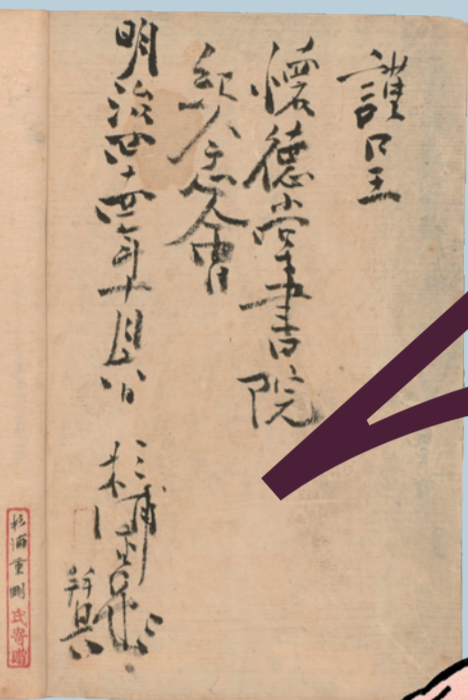 謹呈
懷德堂書院
紀念會
明治四十四年十月
杉浦重剛
杉浦重剛氏寄贈